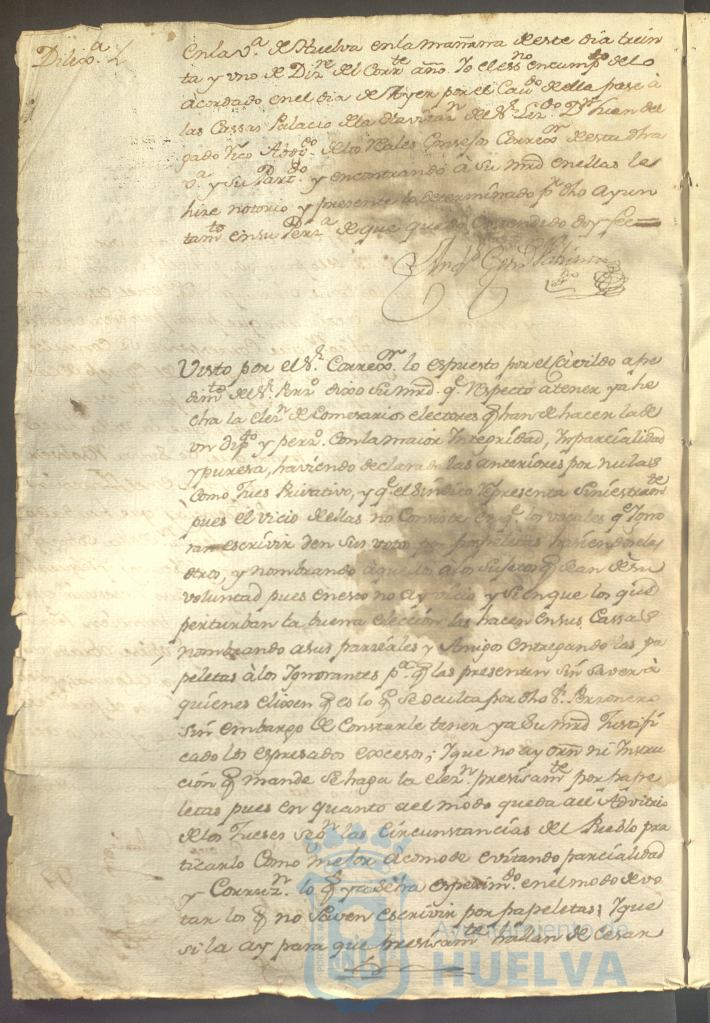 Dilixª
En la Vª de Huelva en la mañana de este dia trein
ta y uno de Dizre del Corrte año. Yo el essno en cumpto de lo
acordado en el dia de Ayer por el Cavdo de ella pase à
las Cassas Palacio de la havitazn de el Sr Lizdo Dn Juan del
gado Rico Abogdo de los Reales Consejos Correxor de esta dha
vª y su Partdo y encontrando à su mrd en ellas le
hize notorio y presente lo determinado pr dho Ayun
tamto en su Perzª de que quedo entendido doy fee
Visto por el Sr Correxor lo espuesto por el Cavildo a pe
dimto de el Sr Perro dixo su mrd qe respecto a tener ya he
cha la elezn de Comesarios electores q han de hacer la de
un dipto y perzo con la maior Integridad, Inparcialidad
y puresa, haviendo declarado las anteriores por nulas
como Jues Privativo, y qe el sindico representa siniestramte
pues el vicio de ellas no Consiste en qe los vocales qe Igno
ran escrivir den sus votos por papeletas haciendoselas
otro, y nombrando aquellos a los sujetos q sean de su
voluntad pues en esto no ay vicio y si en que los que
perturban la buena elección las hacen en sus Cassas
nombrando a sus parseales y Amigos entregando las pa
peletas à los Ignorantes pª q las presenten sin saver à
quienes elixen q es lo q se oculta por dho Sr Perronero
sin embargo de Constarle tener ya su mrd Justifi
cado los espresados excesos; Y que no ay orn ni Instru
ción q mande se haga la elezn presisamte por pape
letas pues en quanto a el modo queda a el Advitrio
de los Jueses segn las Circunstancias del Pueblo pra
ticarlo como mejor acomode evitando parcialidad
y Corruzn lo q ya se ha esperimdo en el modo de vo
tar los q no saven escrivir por papeletas; Y que
si la ay para que presisamte hallan de cesar
Ayuntamiento de
HUELVA